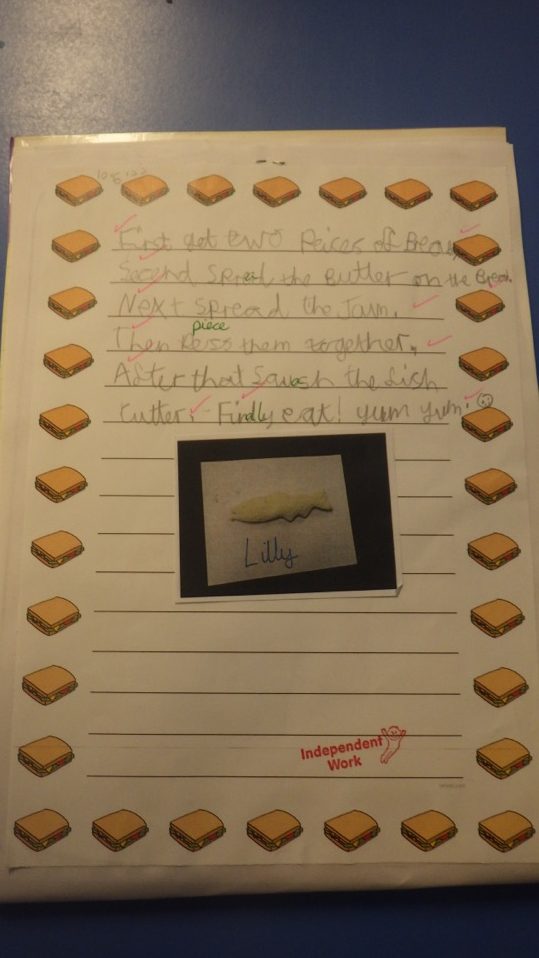 First get two Peices of Bread
Second Spread the Butter on the Bread.
Next Spread the Jam.
piece
Then them together.
After that Squash the fish
cutter. Finally eat! yum yum.
Lilly
Independent
Work